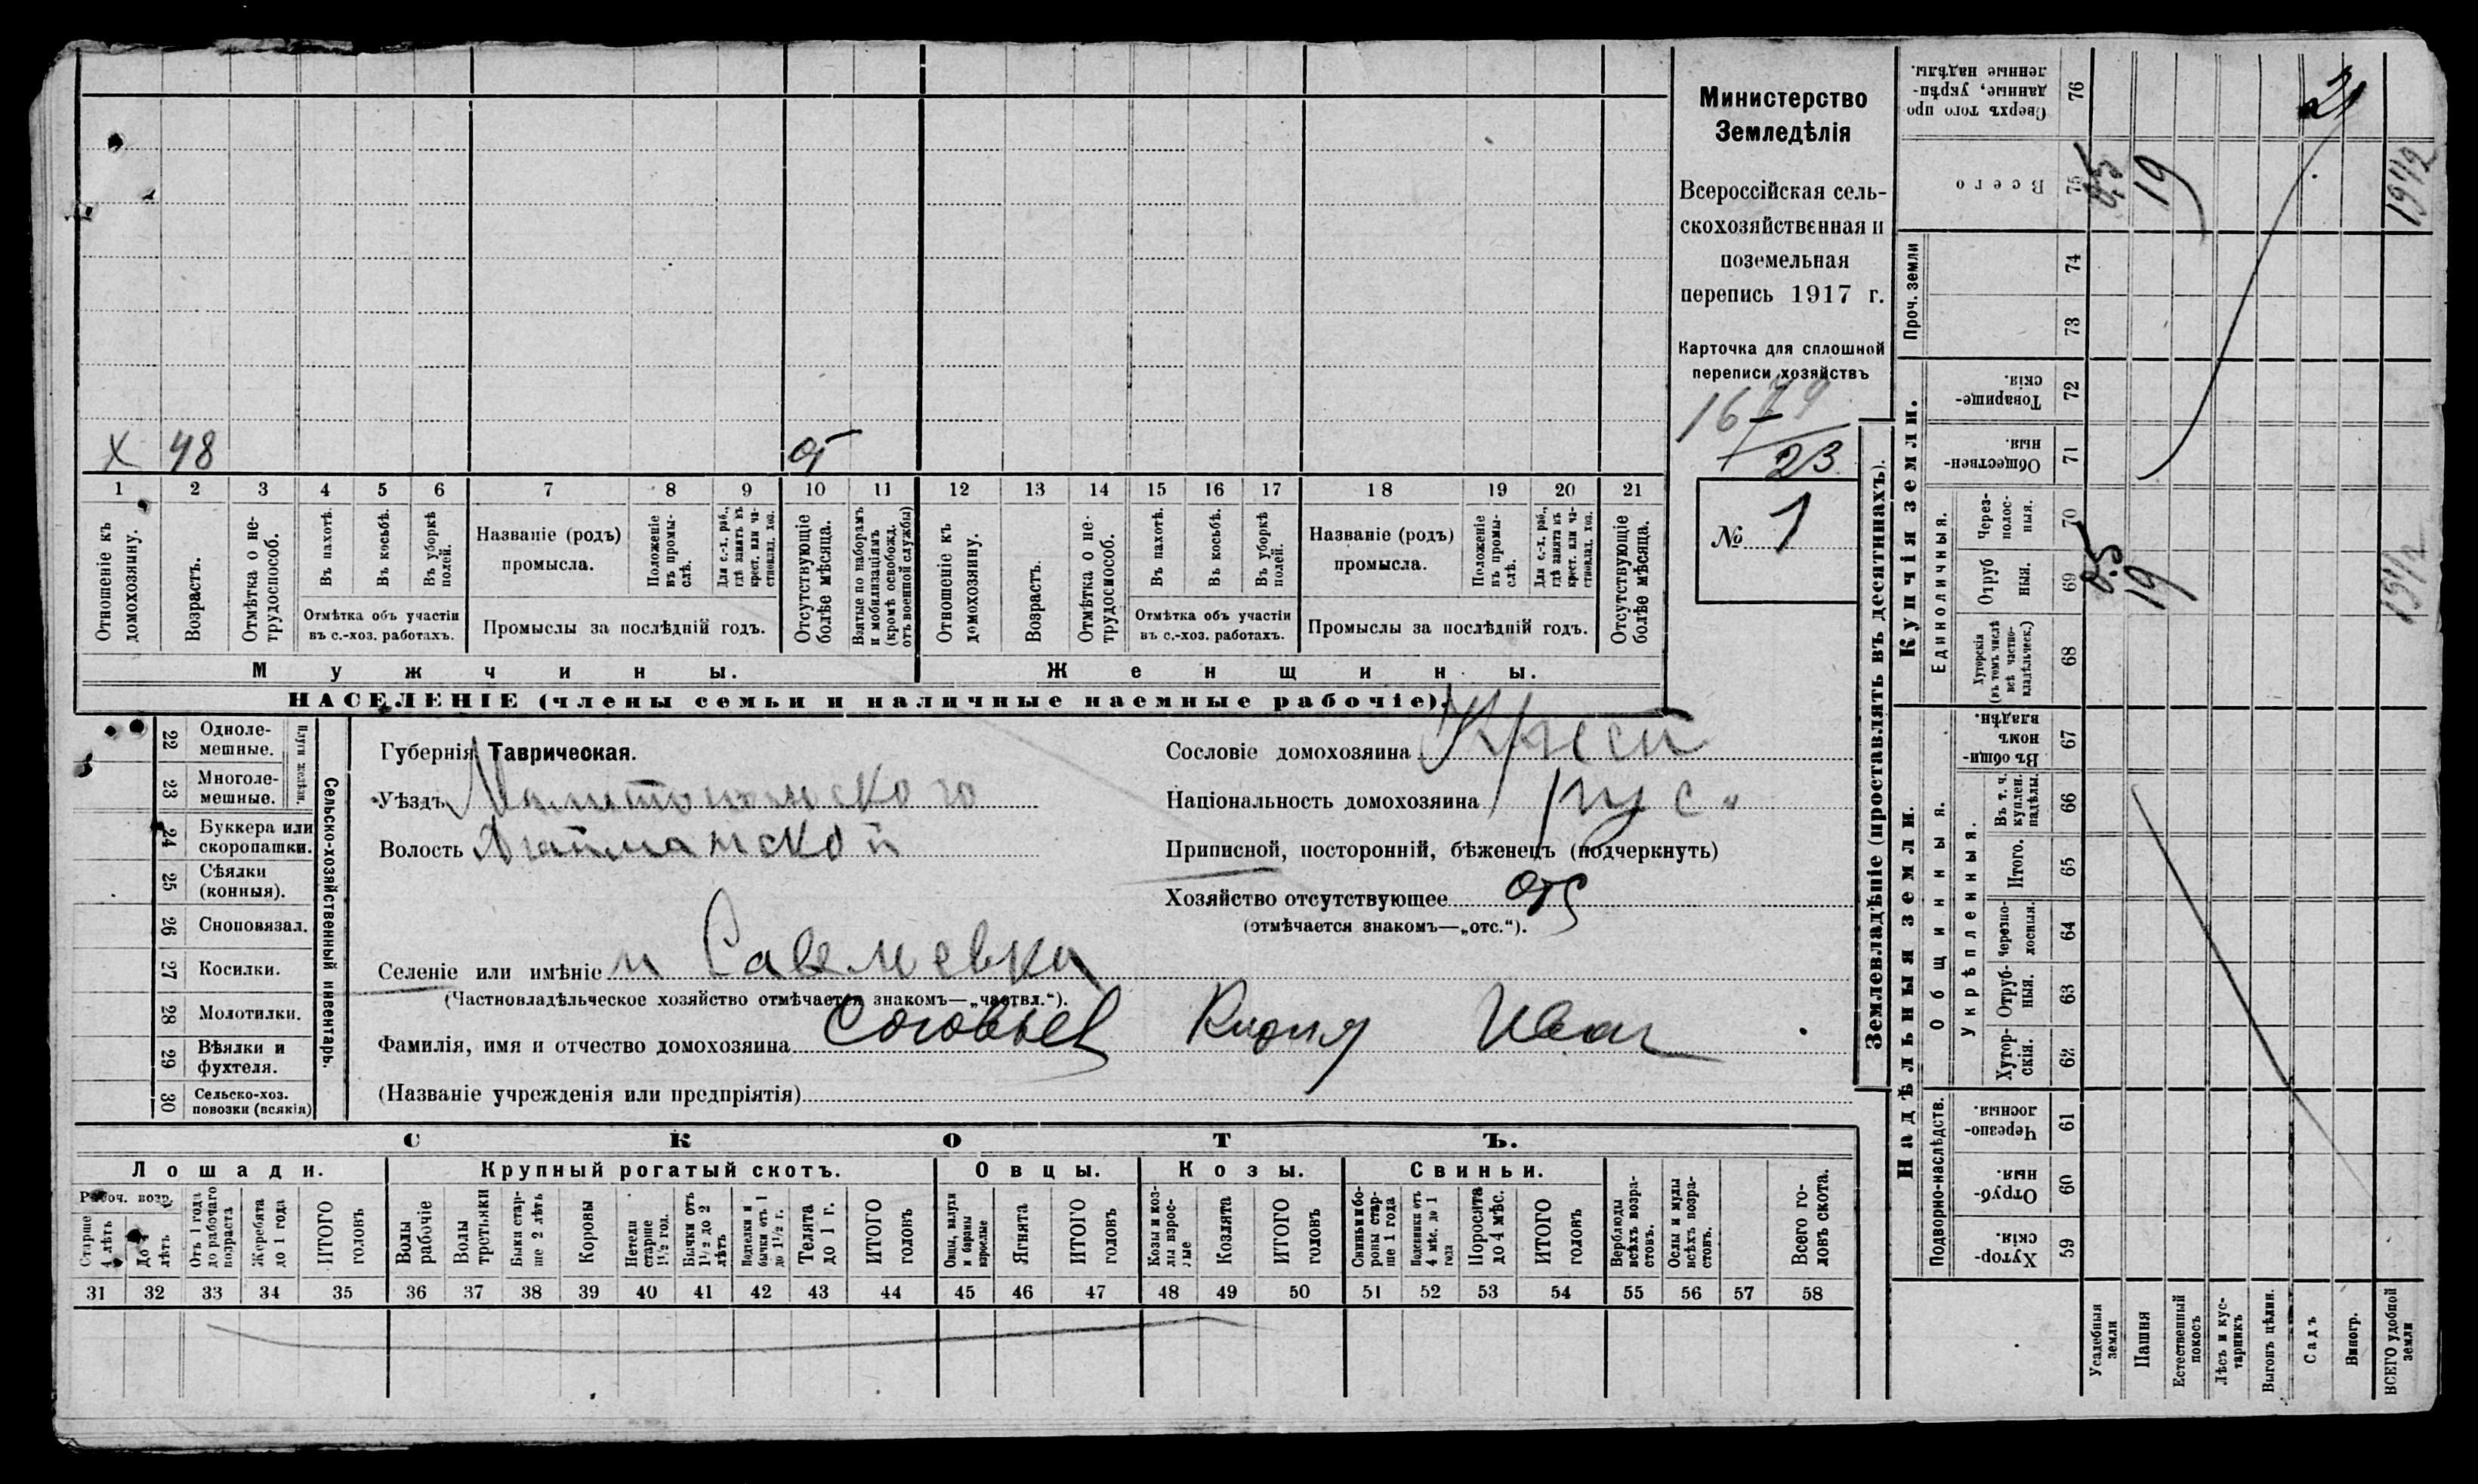 Министерство
Земледѣлія
Всероссійская сель-
скохозяйственная и
поземельная
перепись 1917 г.
Карточка для сплошной
переписи хозяйствъ
23
№ 1
X 48
1 2 3 4 5 6 7 8 9 10 11 12 13 14 15 16 17 18 19 20 21
Отношеніе къ домохозяину.
Возрастъ.
Отмѣтка о не-трудоспособ.
Въ пахотѣ.
Въ косьбѣ.
Въ уборкѣ полей.
Отмѣтка объ участіи
въ с.-хоз. работахъ.
Названіе (родъ)
промысла.
Положеніе въ промы-слѣ.
Для с.-х. раб., гдѣ занятъ въ крест. или ча-стновлад. хоз.
Промыслы за послѣдній годъ.
Отсутствующіе болѣе мѣсяца.
Взятые по наборамъ и мобилизаціямъ (кромѣ освобожд. отъ военной службы)
Отношеніе къ домохозяину.
Возрастъ.
Отмѣтка о не-трудоспособ.
Въ пахотѣ.
Въ косьбѣ.
Въ уборкѣ полей.
Отмѣтка объ участіи
въ с.-хоз. работахъ.
Названіе (родъ)
промысла.
Положеніе въ промы-слѣ.
Для с.-х. раб., гдѣ занята въ крест. или ча-стновлад. хоз.
Промыслы за послѣдній годъ.
Отсутствующіе болѣе мѣсяца.
Мужчины.
Женщины.
НАСЕЛЕНІЕ (члены семьи и наличные наемные рабочіе).
22 Одноле-мешные.
23 Многоле-мешные.
Плуги желѣзн.
24 Буккера или скоропашки.
25 Сѣялки (конныя).
26 Сноповязал.
27 Косилки.
28 Молотилки.
29 Вѣялки и фухтеля.
30 Сельско-хоз. повозки (всякія)
Сельско-хозяйственный инвентарь.
Губернія Таврическая.
Уѣздъ Мелитопольского
Волость
Селеніе или имѣніе
(Частновладѣльческое хозяйство отмѣчается знакомъ—„частвл.“).
Фамилія, имя и отчество домохозяина Соловьев Иван
(Названіе учрежденія или предпріятія)
Сословіе домохозяина Крест
Національность домохозяина рус.
Приписной, посторонній, бѣженецъ (подчеркнуть)
Хозяйство отсутствующее отс
(отмѣчается знакомъ—„отс.“).
СКОТЪ.
Лошади.
Крупный рогатый скотъ.
Овцы.
Козы.
Свиньи.
Рабоч. возр.
Старше 4 лѣтъ
До 4 лѣтъ
Отъ 1 года до рабочаго возраста
Жеребята до 1 года
ИТОГО головъ
Волы рабочіе
Волы третьяки
Быки стар-ше 2 лѣтъ
Коровы
Нетели старше 1½ год.
Бычки отъ 1½ до 2 лѣтъ
Подтелки и бычки отъ 1 до 1½ г.
Телята до 1 г.
ИТОГО головъ
Овцы, валухи и бараны взрослые
Ягнята
ИТОГО головъ
Козы и коз-лы взрос-лые
Козлята
ИТОГО головъ
Свиньи бо-ровы стар-ше 1 года
Подсвинки отъ 4 мѣс. до 1 года
Поросята до 4 мѣс.
ИТОГО головъ
Верблюды всѣхъ возра-стовъ.
Ослы и мулы всѣхъ возра-стовъ.
Всего го-ловъ скота.
31 32 33 34 35 36 37 38 39 40 41 42 43 44 45 46 47 48 49 50 51 52 53 54 55 56 57 58
Землевладѣніе (проставлять въ десятинахъ).
Надѣльныя земли.
Подворно-наслѣдств.
Хутор-скія. 59
Отруб-ныя. 60
Черезпо-лосныя. 61
Общинныя.
Укрѣпленныя.
Хутор-скія. 62
Отруб-ныя. 63
Черезпо-лосныя. 64
Итого. 65
Въ т. ч. куплен. надѣлы. 66
Въ общи-номъ владѣн. 67
Купчія земли.
Единоличныя.
Хуторскія (въ томъ числѣ всѣ частно-владѣльческ.) 68
Отруб ныя. 69
Через-полос-ныя. 70
Обществен-ныя. 71
Товарище-скія. 72
Проч. земли
73
74
Всего 75
Сверхъ того про-данные, укрѣп-ленные надѣлы. 76
Усадебныя земли
Пашня 19 19
Естественный покосъ
Лѣсъ и кус-тарникъ
Выгонъ цѣлин.
Садъ
Виногр.
ВСЕГО удобной земли 19½ 19½